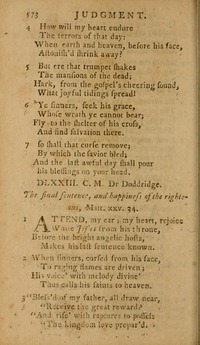 573 JUDGMENT.
4 How will my heart endure
The terrors of that day;
When earth and heaven, before his face,
Astonish'd shrink away?
5 But ere that trumpet shakes
The mansions of the dead;
Hark, from the gospel's cheering sound,
What joyful tidings spread!
6 Ye sinners, seek his grace,
Whose wrath ye cannot bear;
Fly to the shelter of his cross,
And find salvation there.
7 So shall that curse remove;
By which the Savior bled;
And the last awful day shall pour
his blessings on your head.
DLXXIII. C. M. Dr Doddridge.
The final sentence, and happiness of the righte-
ous, Matt. xxv. 34.
1 ATTEND, my ear; my heart, rejoice
While Jesus from his throne,
Before the bright angelic hosts,
Makes his last sentence known.
2 When sinners, cursed from his face,
To raging flames are driven;
His voice with melody divine
Thus calls his saints to heaven.
3 "Bless'd of my father, all draw near,
"Receive the great reward;
"And rise with raptures to possess
"The kingdom love prepar'd.